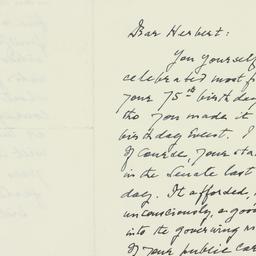 Dear Herbert:
You yourself
celebrated most f
your 75th birthday
tho you made it
birthday guest. I
of course, your sta
in the Senate last
day. It afforded,
unconsciously, a good
into the governing m
of your public car